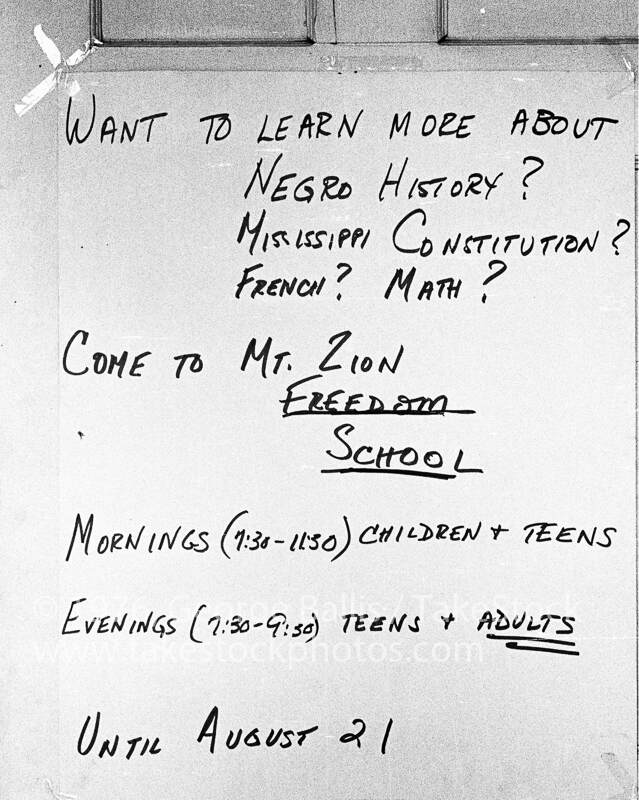 WANT TO LEARN MORE ABOUT
NEGRO HISTORY?
MISSISSIPPI CONSTITUTION?
FRENCH? MATH?
COME TO MT. ZION
FREEDOM
SCHOOL
MORNINGS (9:30-11:30) CHILDREN + TEENS
EVENINGS (7:30-9:30) TEENS + ADULTS
© 1976 George Ballis / TakeStock
www.takestockphotos.com
UNTIL AUGUST 21